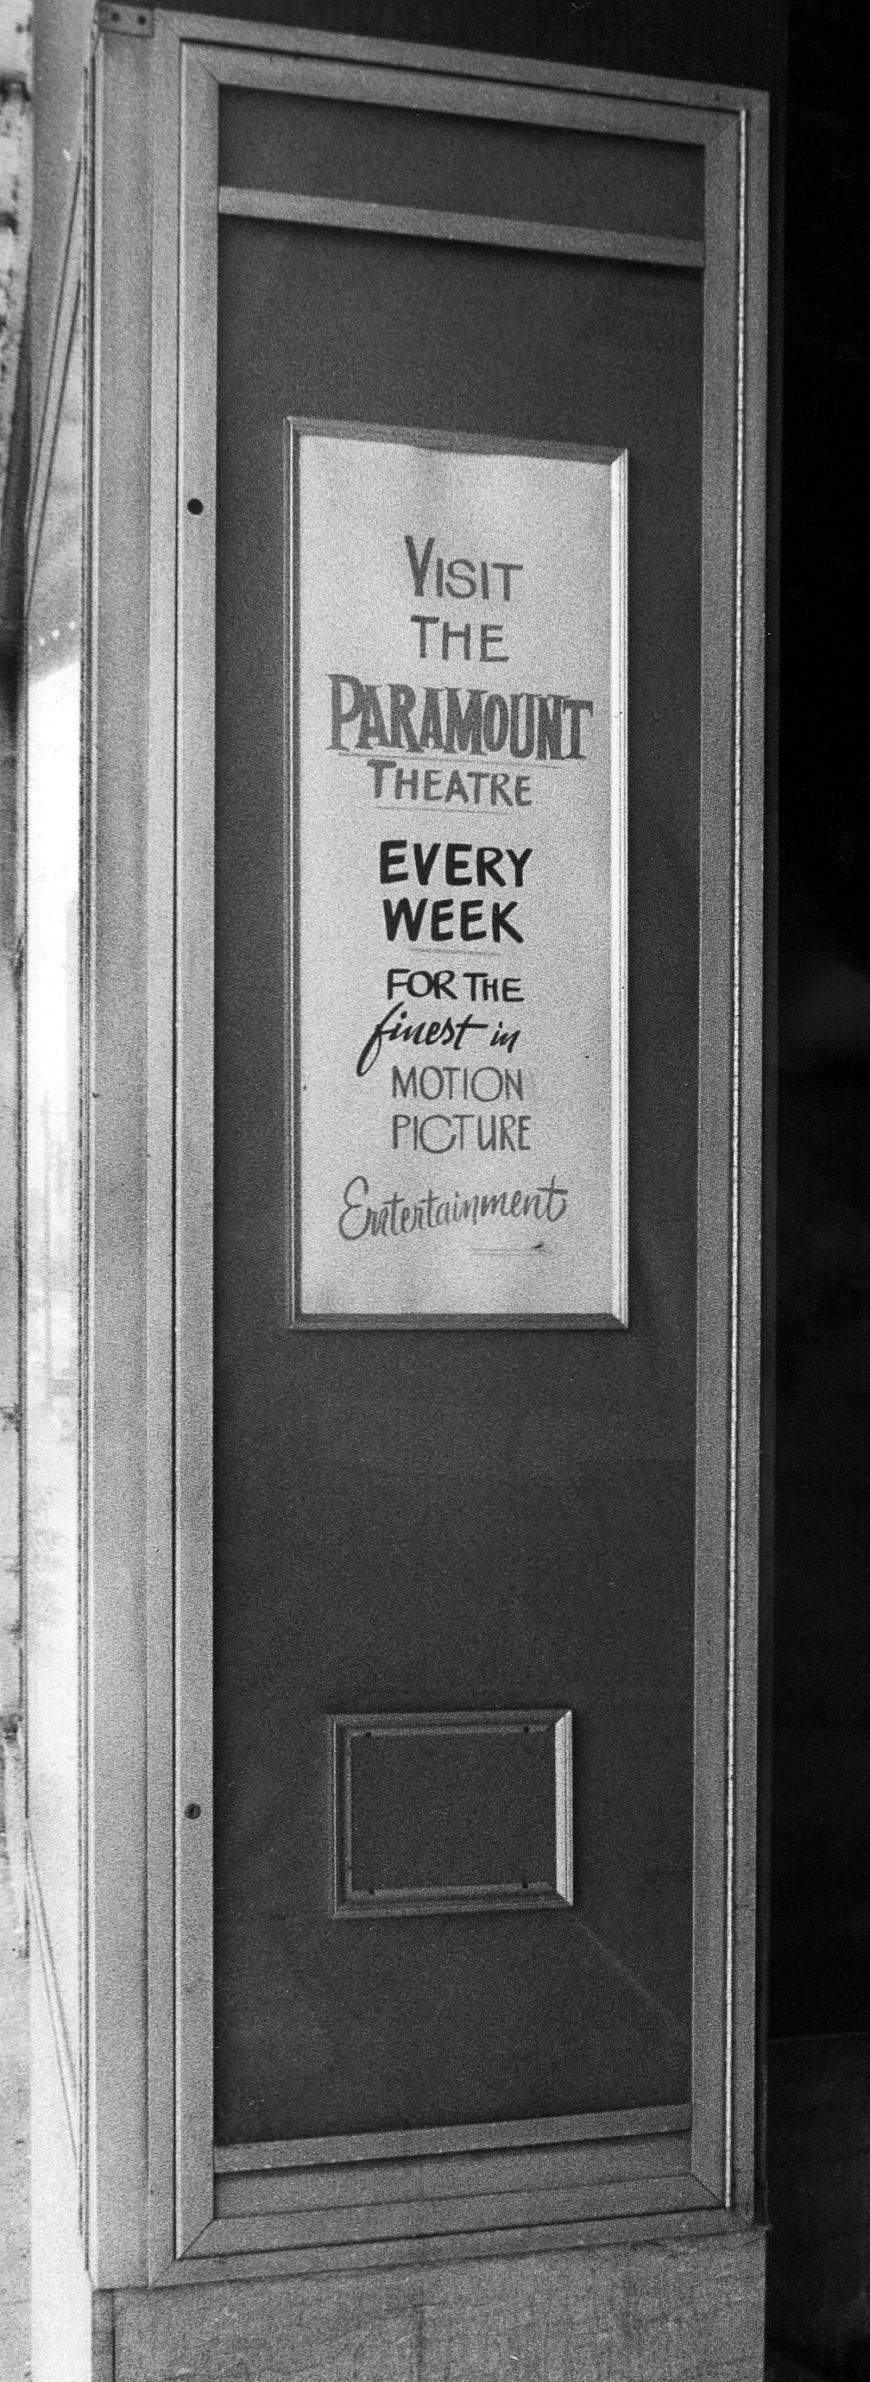 VISIT
THE
PARAMOUNT
THEATRE
EVERY
WEEK
FOR THE
finest in
MOTION
PICTURE
Entertainment